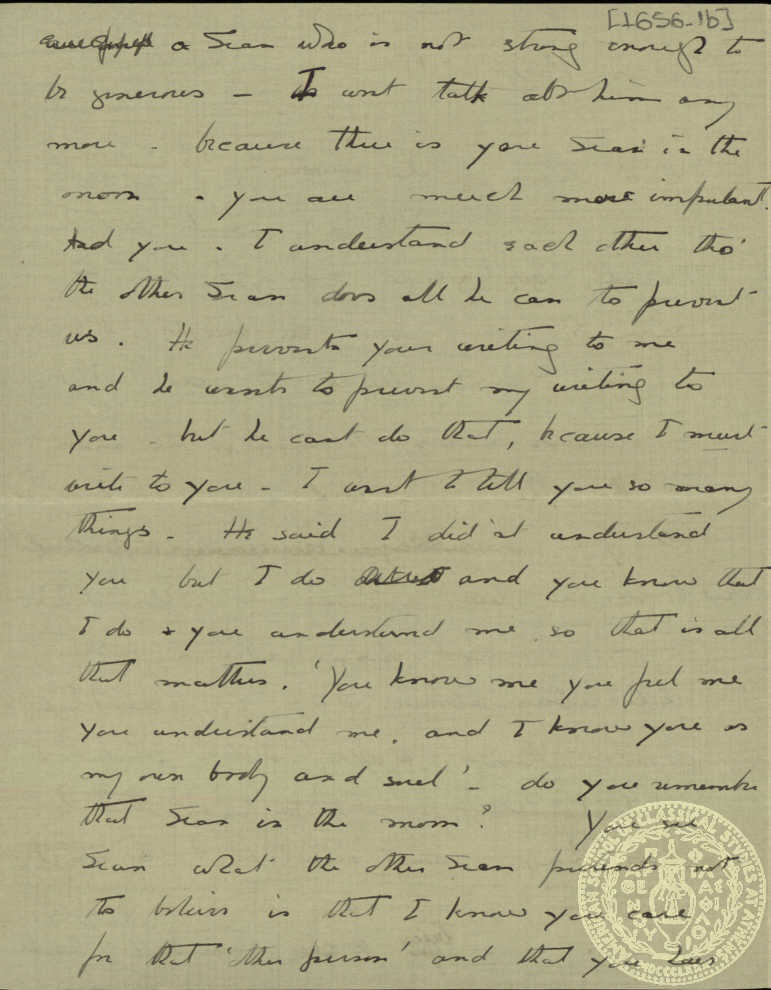 [1656-1b]
a Sean who is not strong enough to
be generous - I wont talk abt him any
more - because there is you Sean in the
moon - you are much more important.
And you - I understand each other tho'
the other Sean does all he can to prevent
us. He prevents your writing to me
and he wants to prevent my writing to
you - but he cant do that, because I must
write to you - I want to tell you so many
things - He said I did'nt understand
you but I do and you know that
I do & you understand me so that is all
that matters. 'You know me you feel me
you understand me, and I know you as
my own body and soul' - do you remember
that Sean in the moon? You see
Sean what the other Sean pretends not
to believe is that I know you care
for that 'other person' and that you
AMERICAN SCHOOL OF CLASSICAL STUDIES AT ATHENS